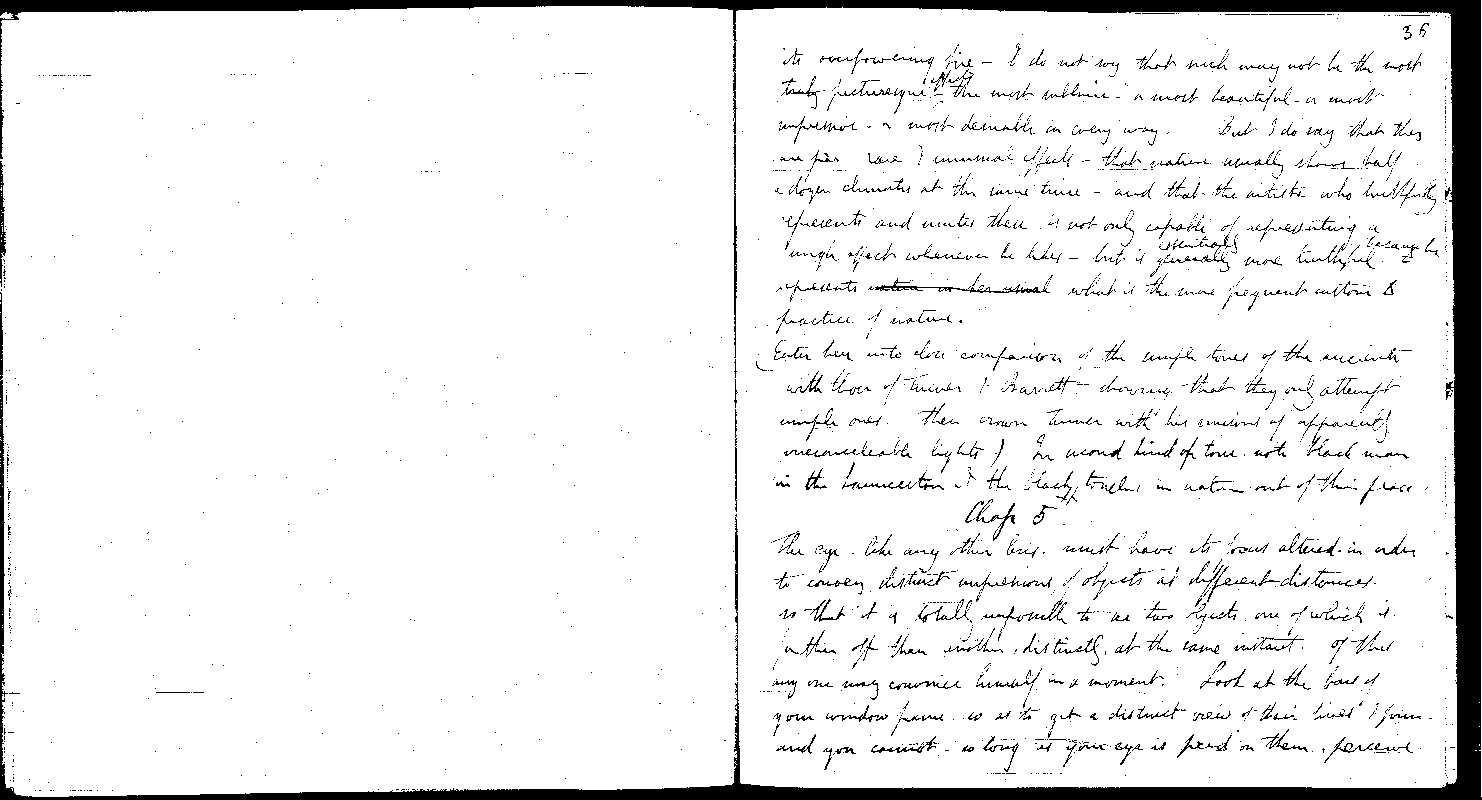 36
its overpowering fire - I do not say that such may not be the most
truly picturesque effects - the most sublime - a most beautiful - a most
impressive - a most desirable in every way. But I do say that they
are rare & unusual effects - that nature usually shows half
a dozen climates at the same time - and that the artist who truthfully
represents and unites them is not only capable of representing a
single effect whenever he likes - but is generally essentially more truthful because he
represents nature in her usual what is the more frequent custom &
practice of nature.
(Enter here into close comparison of the simple tones of the ancients
with those of Turner & Barrett - showing that they only attempt
simple ones. Then crown Turner with his unions of apparently
unreconcileable lights) In second kind of tone note black man
in the Launceston & the black touches in nature out of their place.
Chap 5
The eye - like any other lens - must have its focus altered - in order
to convey distinct impressions of objects at different distances
so that it is totally impossible to see two objects one of which is
further off than another, distinctly, at the same instant. Of this
any one may convince himself in a moment. Look at the bars of
your window frame so as to get a distinct view of their lines & form -
and you cannot - so long as your eye is fixed on them, perceive